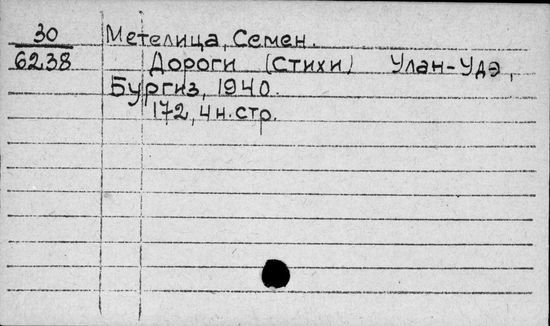 30 Метелица, Семен.
6238 Дороги (Стихи) Улан-Удэ,
Бургиз, 1940.
172, 4 н. стр.